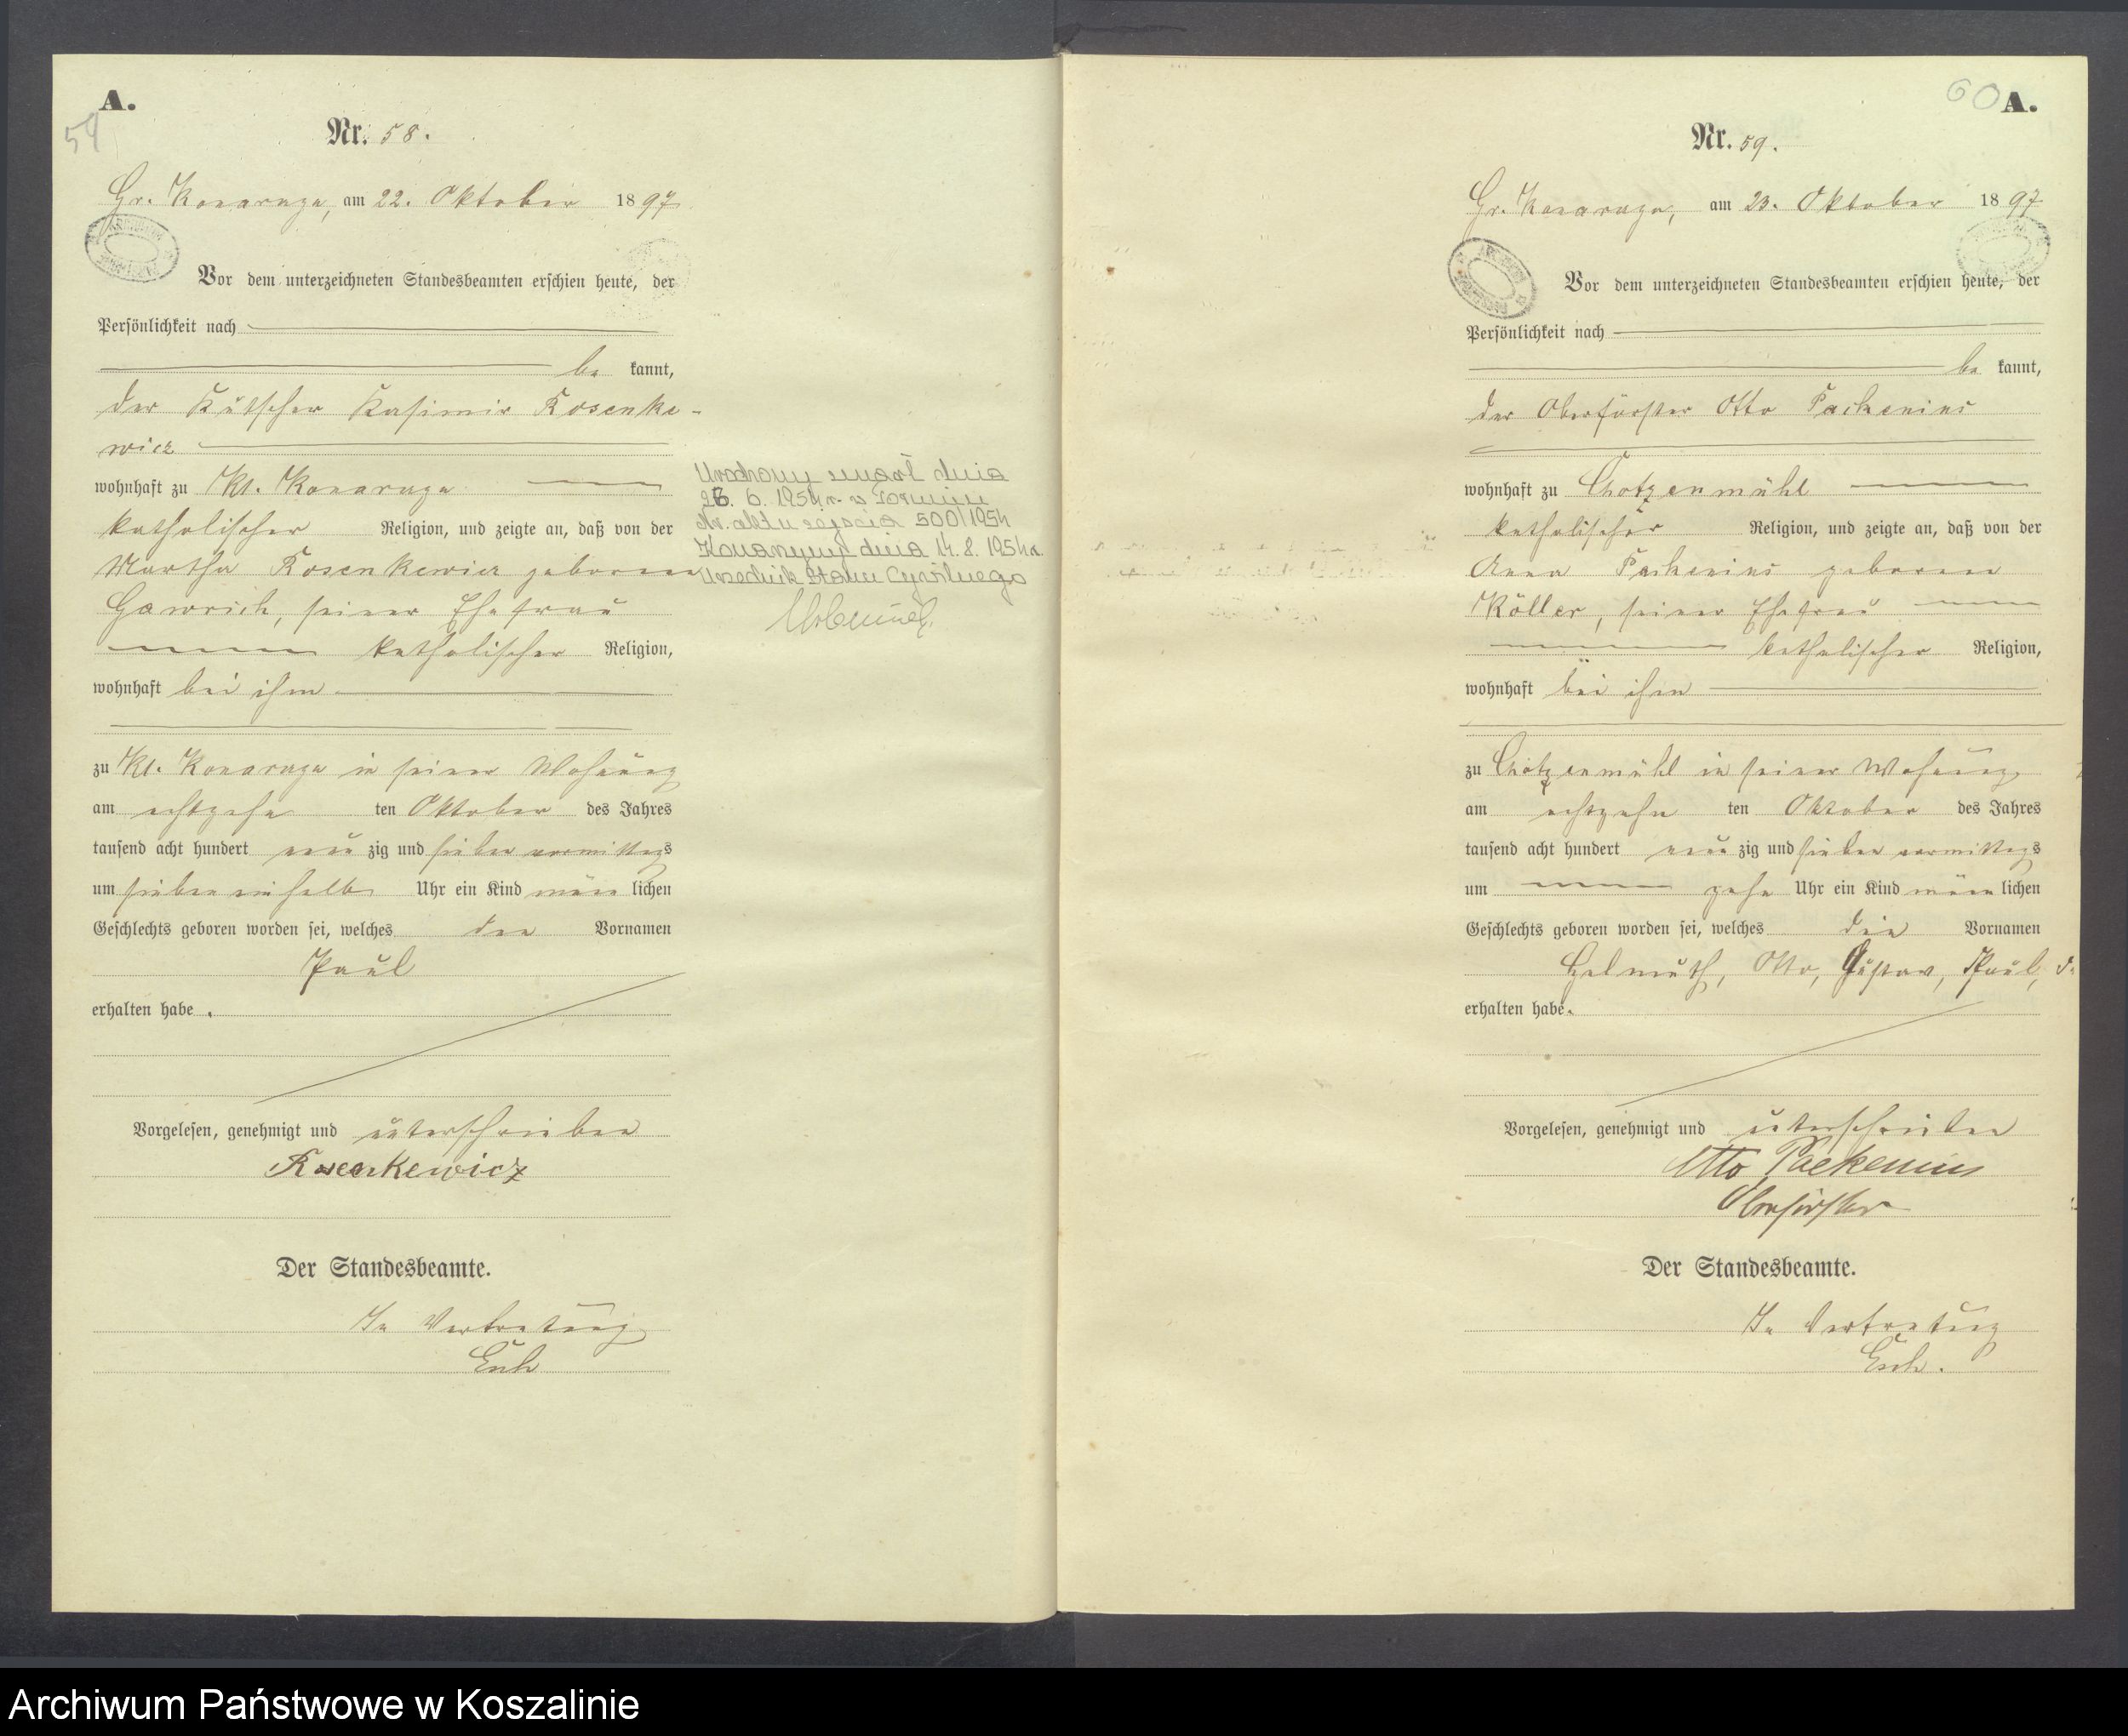 A.
59
Nr. 58.
Gr. Konarzyn, am 22. Oktober 1897
Vor dem unterzeichneten Standesbeamten erschien heute, der
Persönlichkeit nach
be kannt,
der Kutscher Kasimir Rosenke-
wicz
wohnhaft zu Kl. Konarzyn
katholischer Religion, und zeigte an, daß von der
Martha Rosenkewicz geborene
Gawrich, seiner Ehefrau
katholischer Religion,
wohnhaft bei ihm
zu Kl. Konarzyn in seiner Wohnung
am achtzehn ten Oktober des Jahres
tausend acht hundert neun zig und sieben vormittags
um sieben ein halb Uhr ein Kind männ lichen
Geschlechts geboren worden sei, welches den Vornamen
Paul
erhalten habe.
Vorgelesen, genehmigt und unterschrieben
Rosenkewicz
Der Standesbeamte.
In Vertretung
Esch
Urodzony zmarł dnia
26. 6. 1954 r. w Toruniu
Nr. aktu zejścia 500/1954
Konarzyny dnia 14. 8. 1954 r.
Urzędnik Stanu Cywilnego
60 A.
Nr. 59.
Gr. Konarzyn, am 23. Oktober 1897
Vor dem unterzeichneten Standesbeamten erschien heute, der
Persönlichkeit nach
be kannt,
der Oberförster Otto Packenius
wohnhaft zu Chotzenmühl
katholischer Religion, und zeigte an, daß von der
Anna Packenius geborene
Köller, seiner Ehefrau
katholischer Religion,
wohnhaft bei ihm
zu Chotzenmühl in seiner Wohnung
am achtzehn ten Oktober des Jahres
tausend acht hundert neun zig und sieben vormittags
um zehn Uhr ein Kind männ lichen
Geschlechts geboren worden sei, welches die Vornamen
Helmuth, Otto, Gustav, Paul,
erhalten habe.
Vorgelesen, genehmigt und unterschrieben
Otto Packenius
Oberförster
Der Standesbeamte.
In Vertretung
Esch.
Archiwum Państwowe w Koszalinie